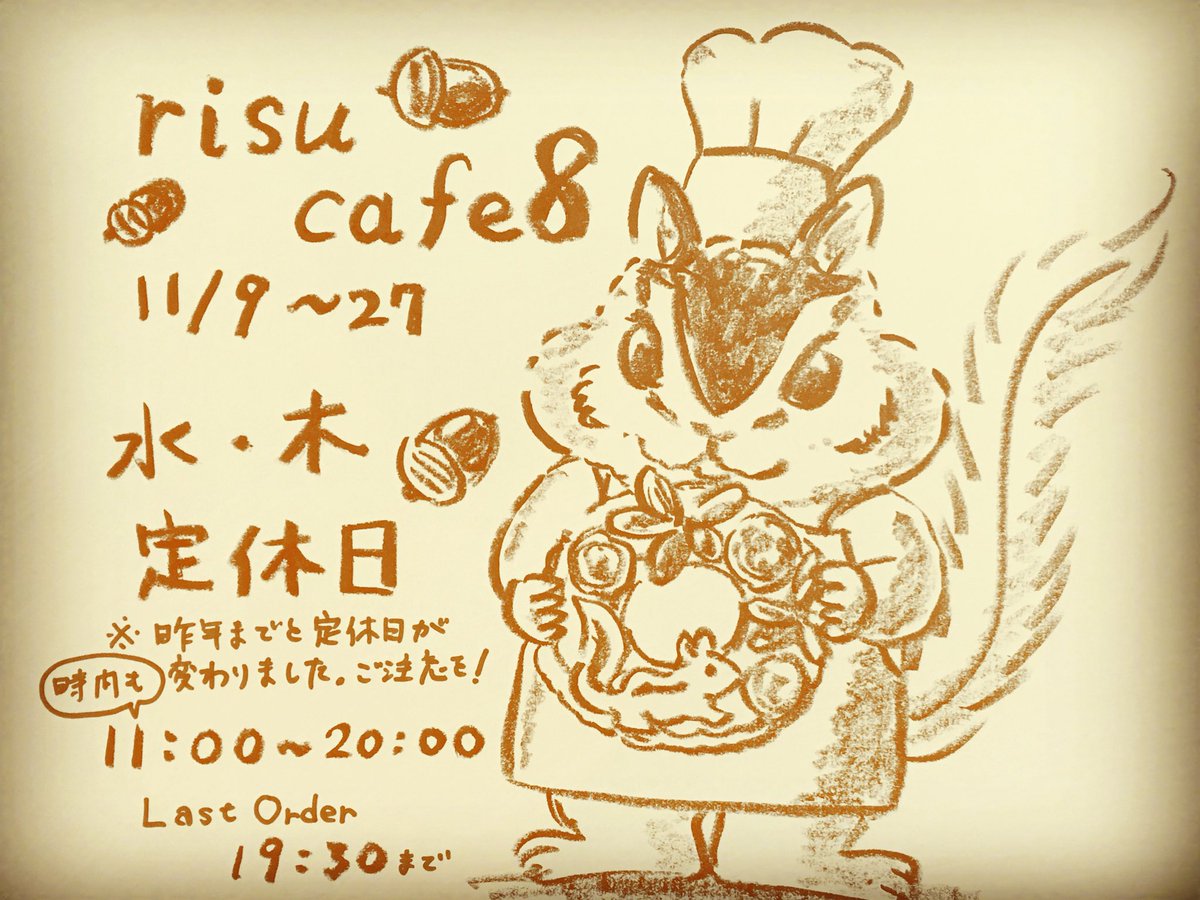 risu
cafe8
11/9～27
水・木
定休日
※昨年までと定休日が
変わりました。ご注意を!
時間も
11:00～20:00
Last Order
19:30まで